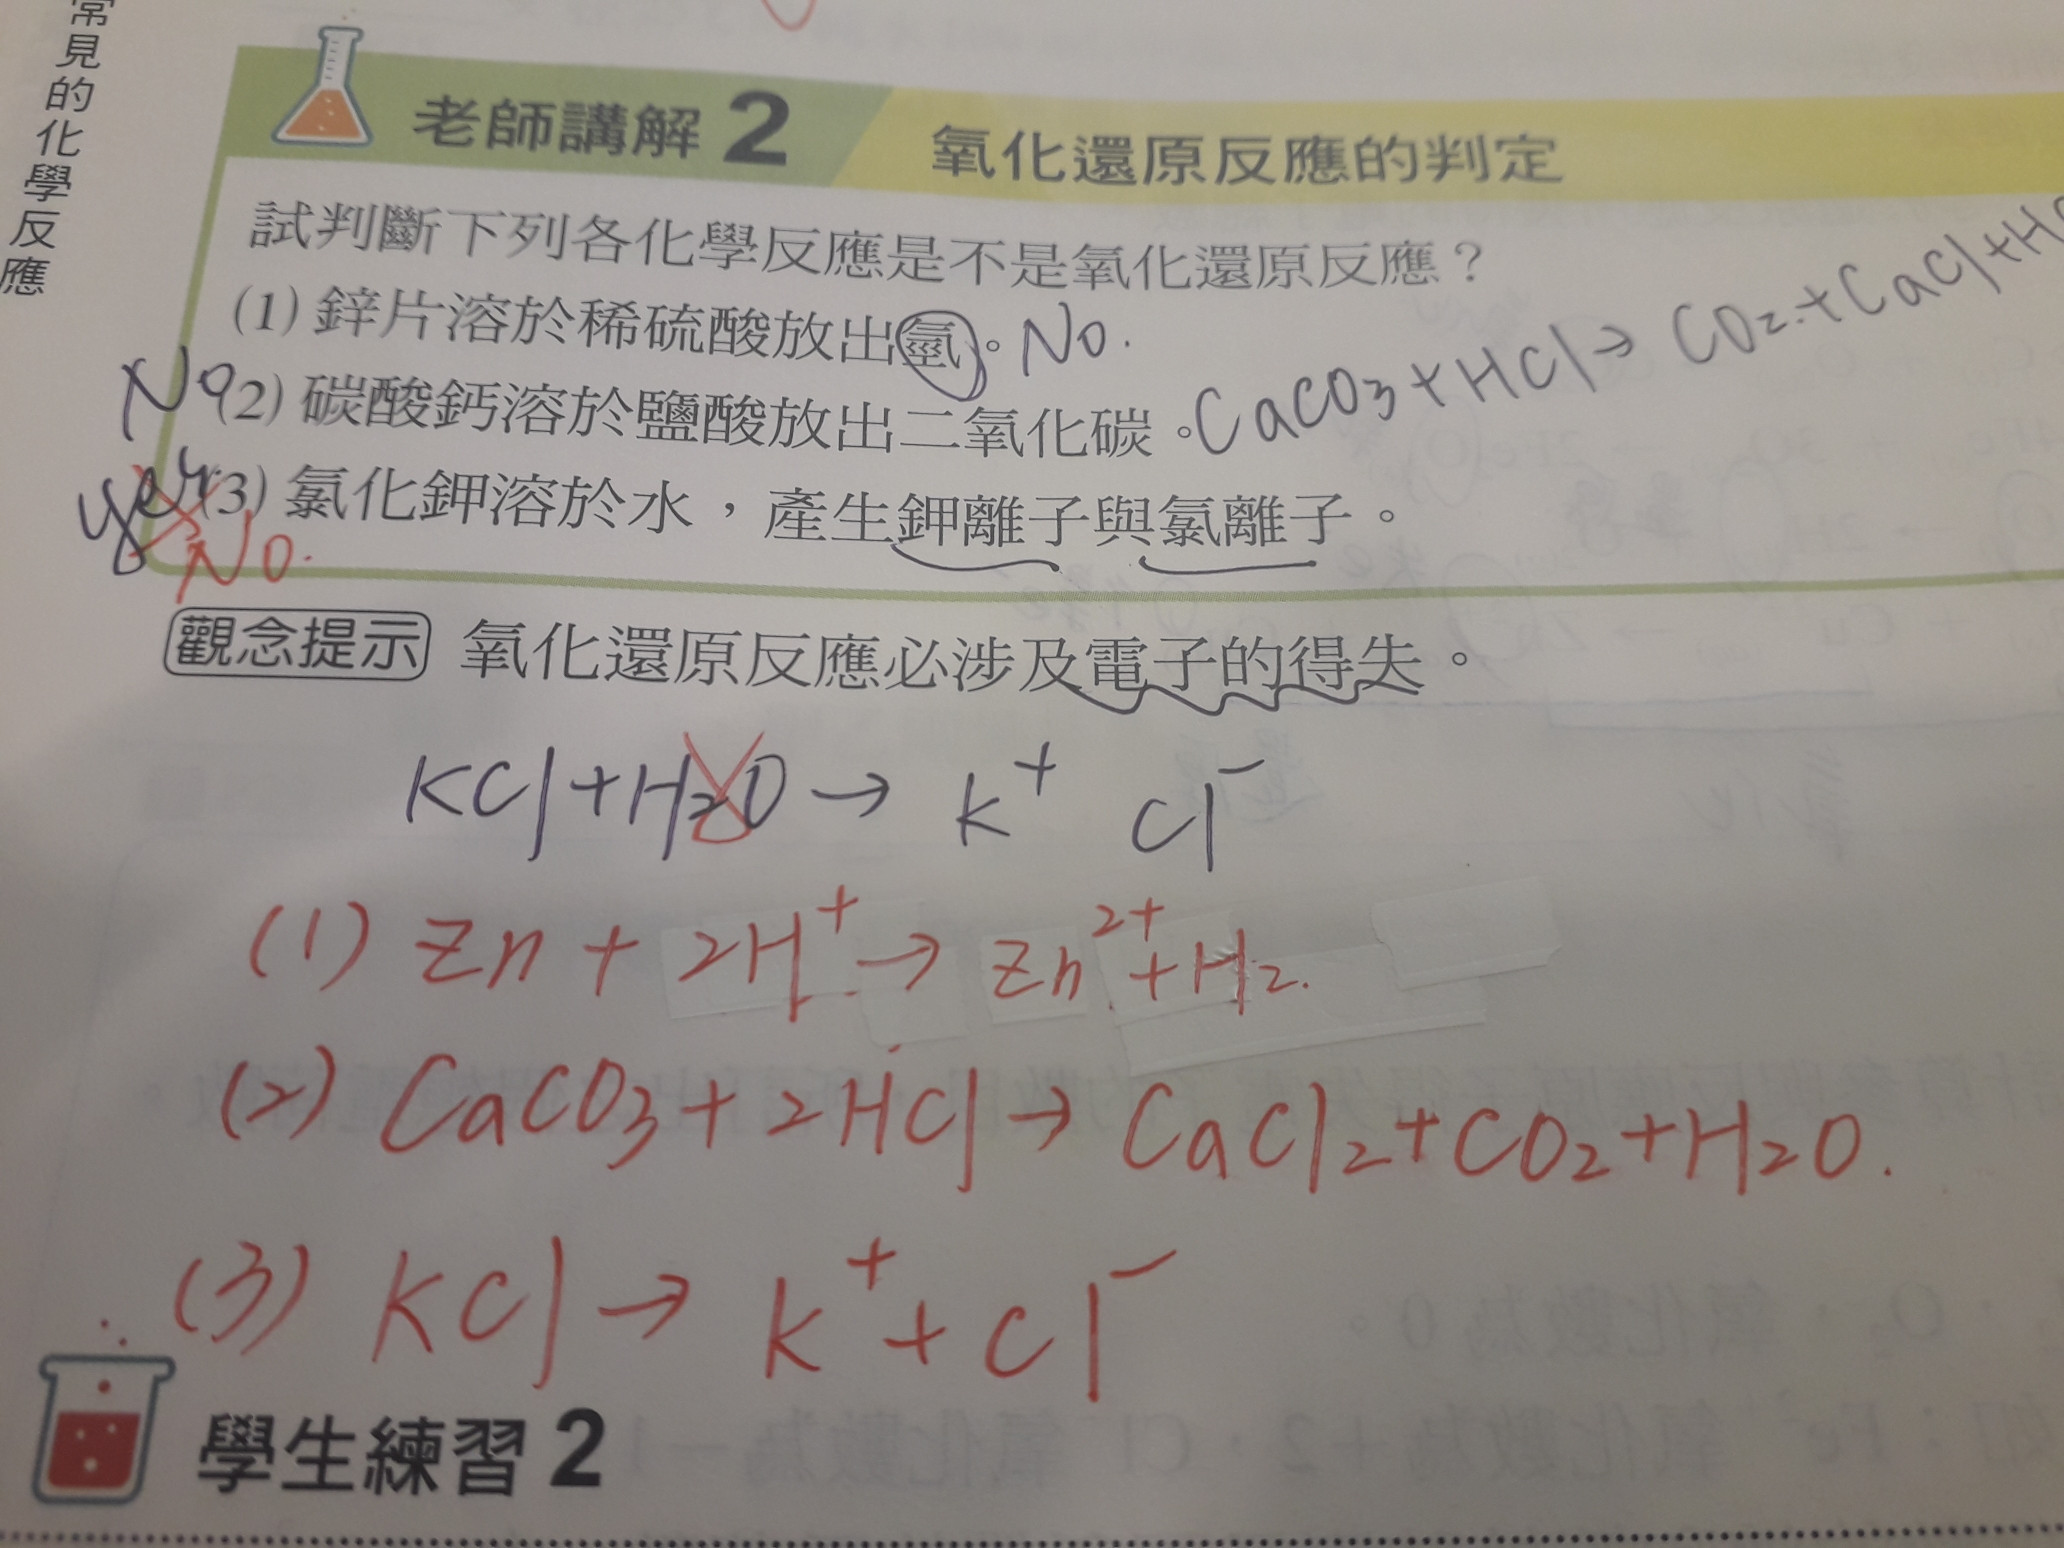 常見的化學反應
老師講解 2 氧化還原反應的判定
試判斷下列各化學反應是不是氧化還原反應？
(1) 鋅片溶於稀硫酸放出氫。No.
No (2) 碳酸鈣溶於鹽酸放出二氧化碳。CaCO3+HCl→CO2+CaCl+H
yes (3) 氯化鉀溶於水，產生鉀離子與氯離子。
No.
觀念提示 氧化還原反應必涉及電子的得失。
KCl+H2O→ K+ Cl-
(1) Zn + 2H+ → Zn2+ + H2.
(2) CaCO3+2HCl→ CaCl2+CO2+H2O.
(3) KCl→ K+ + Cl-
學生練習 2